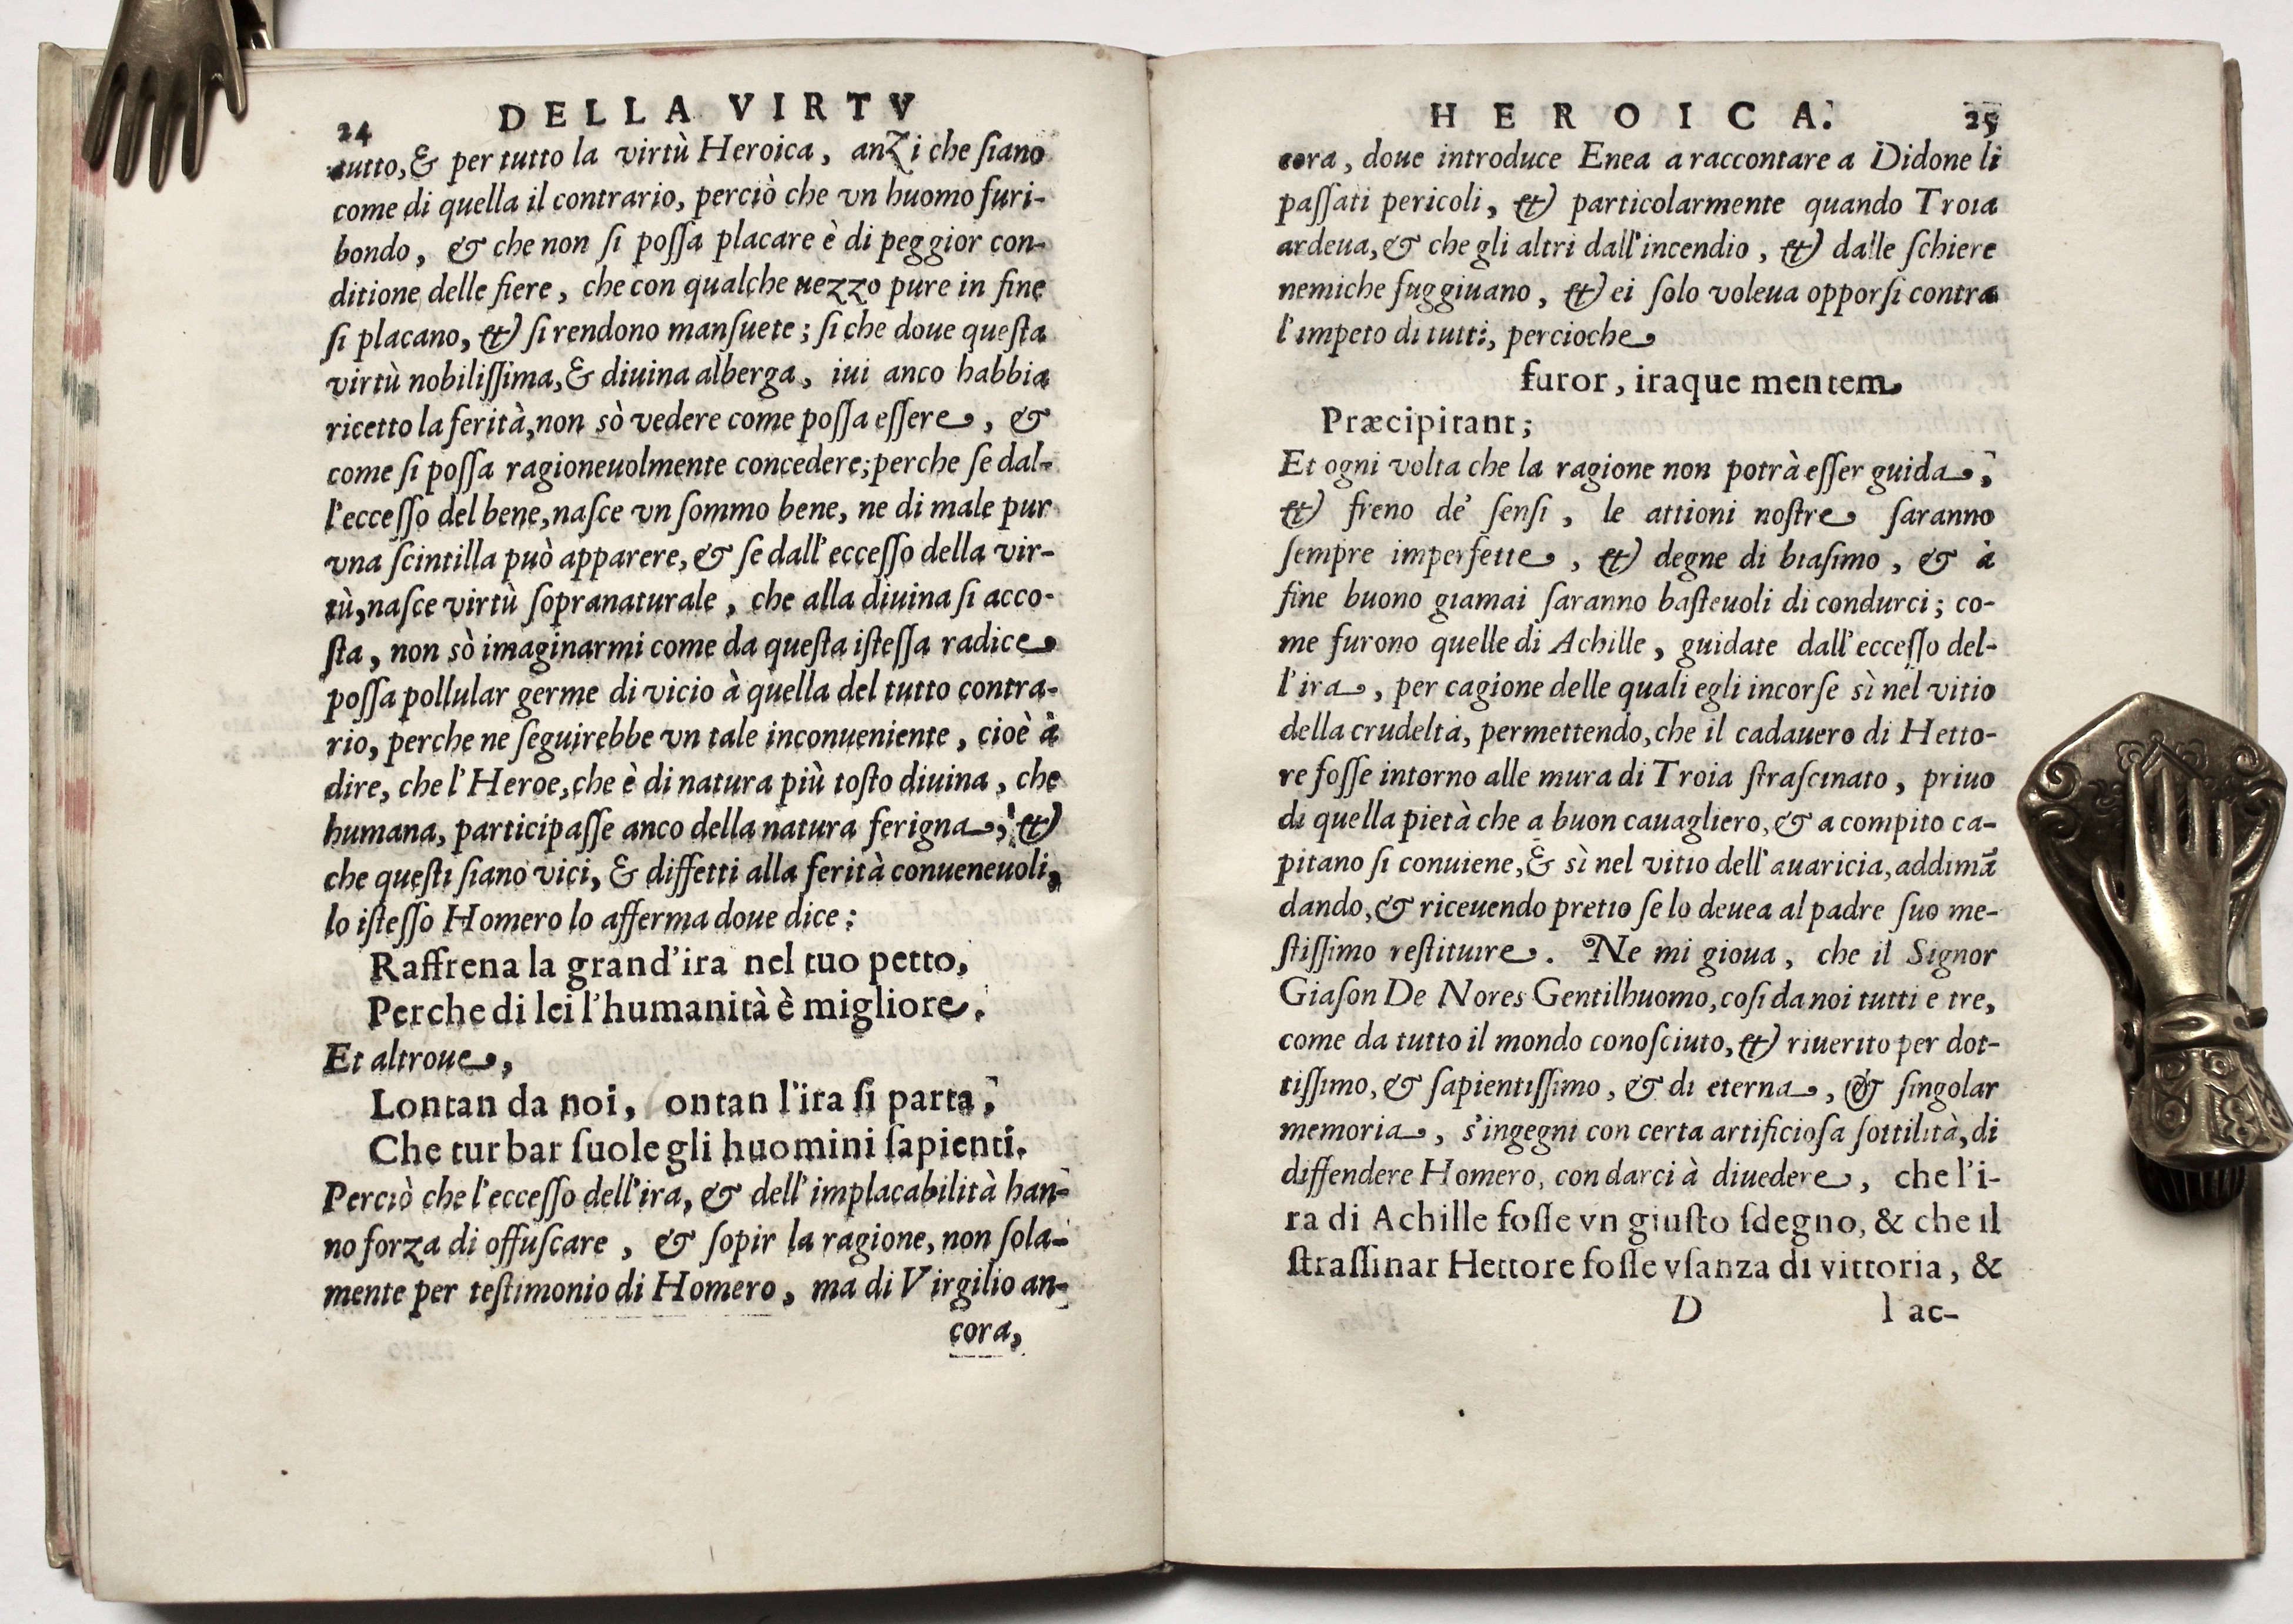 24 DELLA VIRTV
tutto, & per tutto la virtù Heroica, anzi che ſiano
come di quella il contrario, perciò che vn huomo furi-
bondo, & che non ſi poſſa placare è di peggior con-
ditione delle fiere, che con qualche uezzo pure in fine
ſi placano, & ſi rendono manſuete; ſi che doue queſta
virtù nobiliſſima, & diuina alberga, iui anco habbia
ricetto la ferità, non sò vedere come poſſa eſſere, &
come ſi poſſa ragioneuolmente concedere; perche ſe dal-
l'ecceſſo del bene, naſce vn ſommo bene, ne di male pur
vna ſcintilla può apparere, & ſe dall'ecceſſo della vir-
tù, naſce virtù ſopranaturale, che alla diuina ſi acco-
ſta, non sò imaginarmi come da queſta iſteſſa radice
poſſa pollular germe di vicio à quella del tutto contra-
rio, perche ne ſeguirebbe vn tale inconueniente, cioè à
dire, che l'Heroe, che è di natura più toſto diuina, che
humana, participaſſe anco della natura ferigna; &
che queſti ſiano vici, & diffetti alla ferità conueneuoli,
lo iſteſſo Homero lo afferma doue dice:
Raffrena la grand'ira nel tuo petto,
Perche di lei l'humanità è migliore.
Et altroue,
Lontan da noi, ontan l'ira ſi parta,
Che turbar ſuole gli huomini ſapienti.
Perciò che l'ecceſſo dell'ira, & dell'implacabilità han-
no forza di offuſcare, & ſopir la ragione, non ſola-
mente per teſtimonio di Homero, ma di Virgilio an-
cora,
HEROICA. 25
cora, doue introduce Enea a raccontare a Didone li
paſſati pericoli, & particolarmente quando Troia
ardeua, & che gli altri dall'incendio, & dalle ſchiere
nemiche fuggiuano, & ei ſolo voleua opporſi contra
l'impeto di tutti, percioche
furor, iraque mentem
Præcipitant;
Et ogni volta che la ragione non potrà eſſer guida,
& freno de' ſenſi, le attioni noſtre ſaranno
ſempre imperfette, & degne di biaſimo, & à
fine buono giamai ſaranno baſteuoli di condurci; co-
me furono quelle di Achille, guidate dall'ecceſſo del-
l'ira, per cagione delle quali egli incorſe sì nel vitio
della crudeltà, permettendo, che il cadauero di Hetto-
re foſſe intorno alle mura di Troia ſtraſcinato, priuo
di quella pietà che a buon cauagliero, & a compito ca-
pitano ſi conuiene, & sì nel vitio dell'auaricia, addimã
dando, & riceuendo pretio ſe lo deuea al padre ſuo me-
ſtiſſimo reſtituire. Ne mi gioua, che il Signor
Giaſon De Nores Gentilhuomo, coſi da noi tutti e tre,
come da tutto il mondo conoſciuto, & riuerito per dot-
tiſſimo, & ſapientiſſimo, & di eterna, & ſingolar
memoria, s'ingegni con certa artificioſa ſottilità, di
diffendere Homero, con darci à diuedere, che l'i-
ra di Achille foſſe vn giuſto ſdegno, & che il
ſtraſſinar Hettore foſſe vſanza di vittoria, &
D l ac-